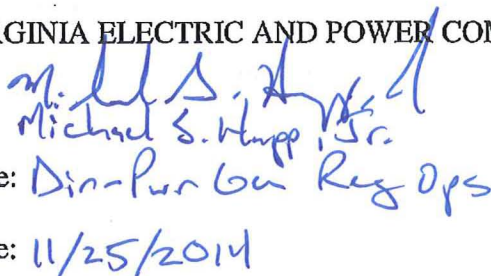 RGINIA ELECTRIC AND POWER COM
Michael S. Hupp, Jr.
e: Dir-Pwr Gen Reg Ops
e: 11/25/2014